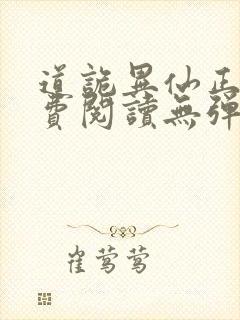 道詭異仙正
費閱讀無彈
崔莺莺